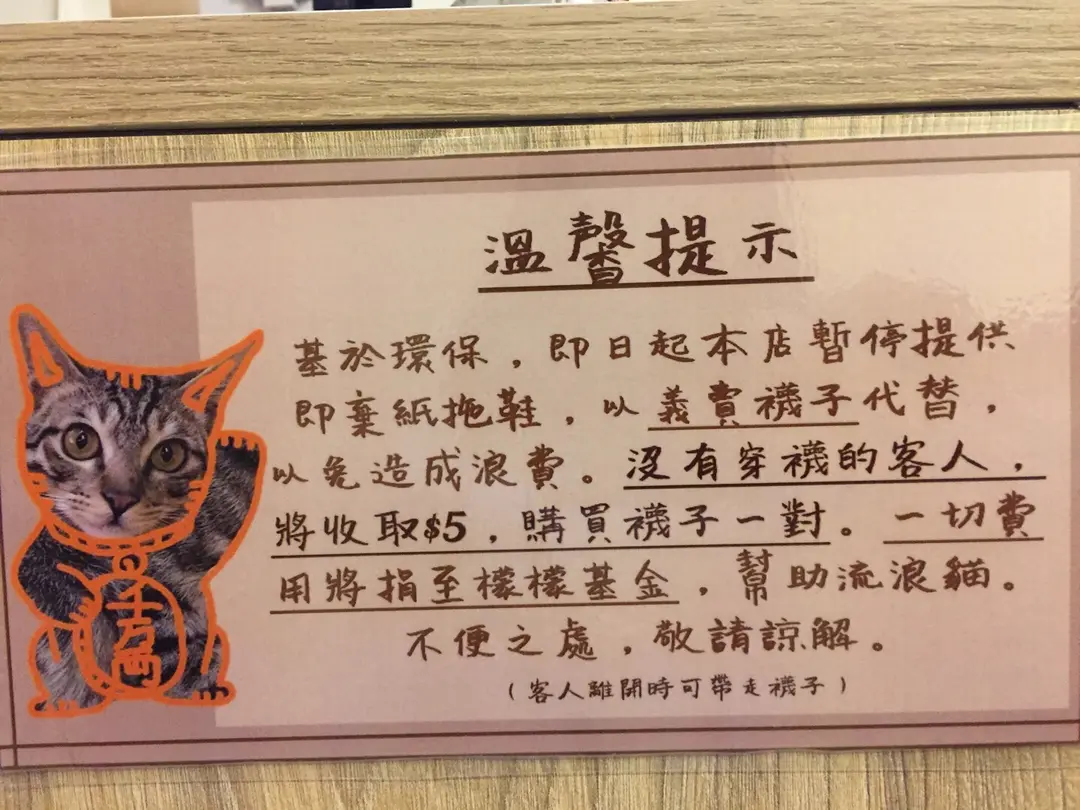 溫馨提示
基於環保，即日起本店暫停提供
即棄紙拖鞋，以義賣襪子代替，
以免造成浪費。沒有穿襪的客人，
將收取$5，購買襪子一對。一切費
用將捐至檬檬基金，幫助流浪貓。
不便之處，敬請諒解。
（客人離開時可帶走襪子）
千萬両